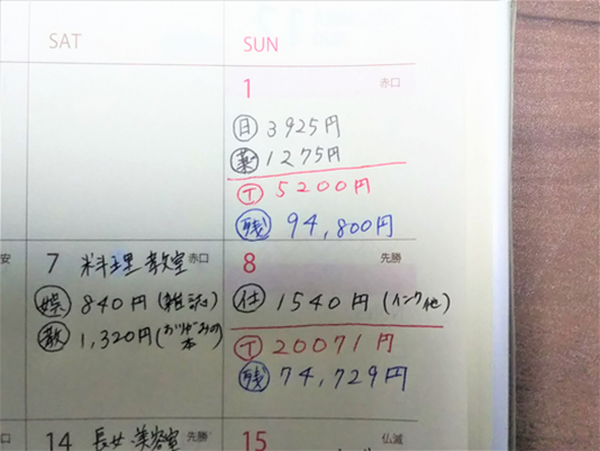 SAT
SUN
1 赤口
日 3925円
薬 1275円
T 5200円
残 94,800円
安
7 料理教室 赤口
娯 840円(雑誌)
教 1,320円(おりがみの本)
8 先勝
仕 1540円(インク他)
T 20071円
残 74,729円
口
14 長女 美容室 先勝
15 仏滅